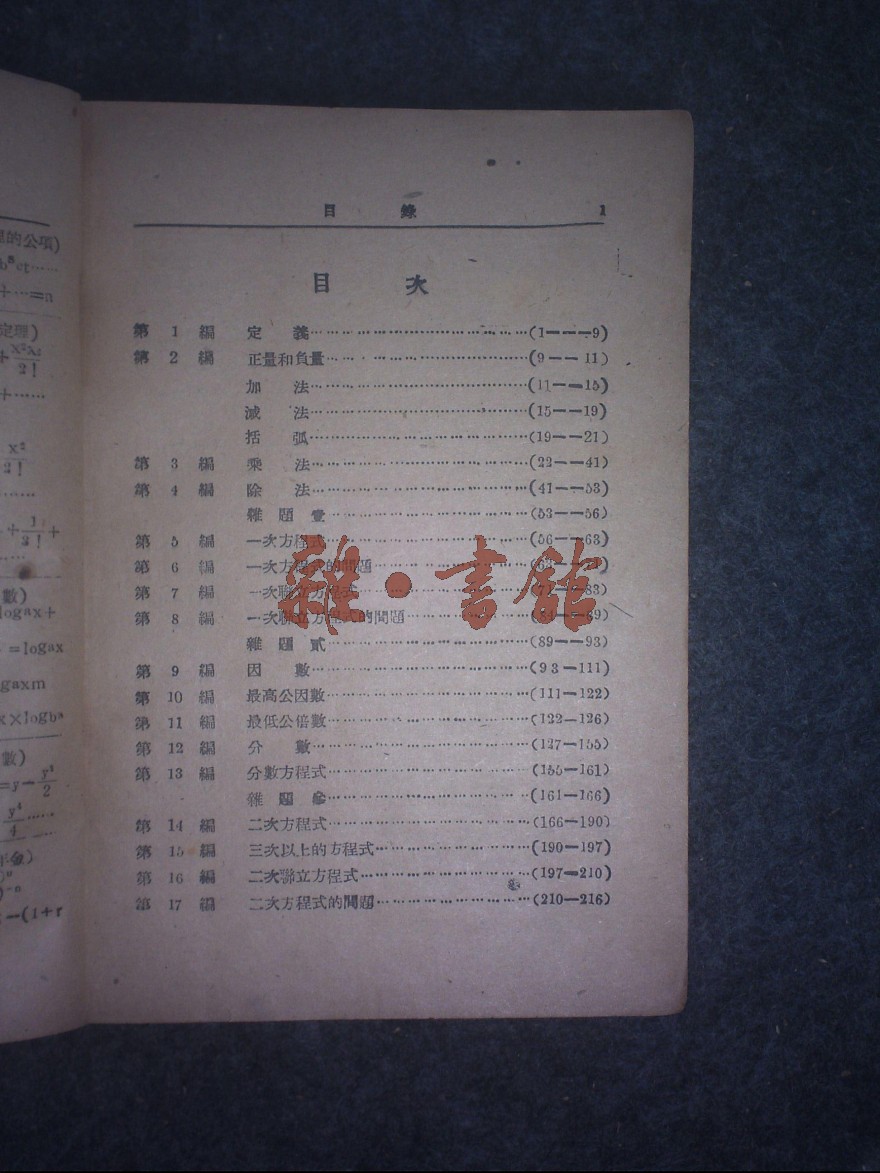 目 錄 1
目 次
第 1 編 定 義……………………………(1——9)
第 2 編 正量和負量……………………………(9——11)
加 法……………………………(11——15)
減 法……………………………(15——19)
括 弧……………………………(19——21)
第 3 編 乘 法……………………………(22——41)
第 4 編 除 法……………………………(41——53)
雜 題 壹……………………………(53——56)
第 5 編 一次方程式……………………………(56——63)
第 6 編 一次方程式的問題
第 7 編 一次聯立方程式
第 8 編 一次聯立方程式的問題
雜 題 貳……………………………(89——93)
第 9 編 因 數……………………………(93—111)
第 10 編 最高公因數……………………………(111—122)
第 11 編 最低公倍數……………………………(122—126)
第 12 編 分 數……………………………(127—155)
第 13 編 分數方程式……………………………(155—161)
雜 題 叁……………………………(161—166)
第 14 編 二次方程式……………………………(166—190)
第 15 編 三次以上的方程式……………………………(190—197)
第 16 編 二次聯立方程式……………………………(197—210)
第 17 編 二次方程式的問題……………………………(210—216)
雜·書館
的公項)
定理)
數)
logax+
=logax
gaxm
×logb
數)
-(1+r